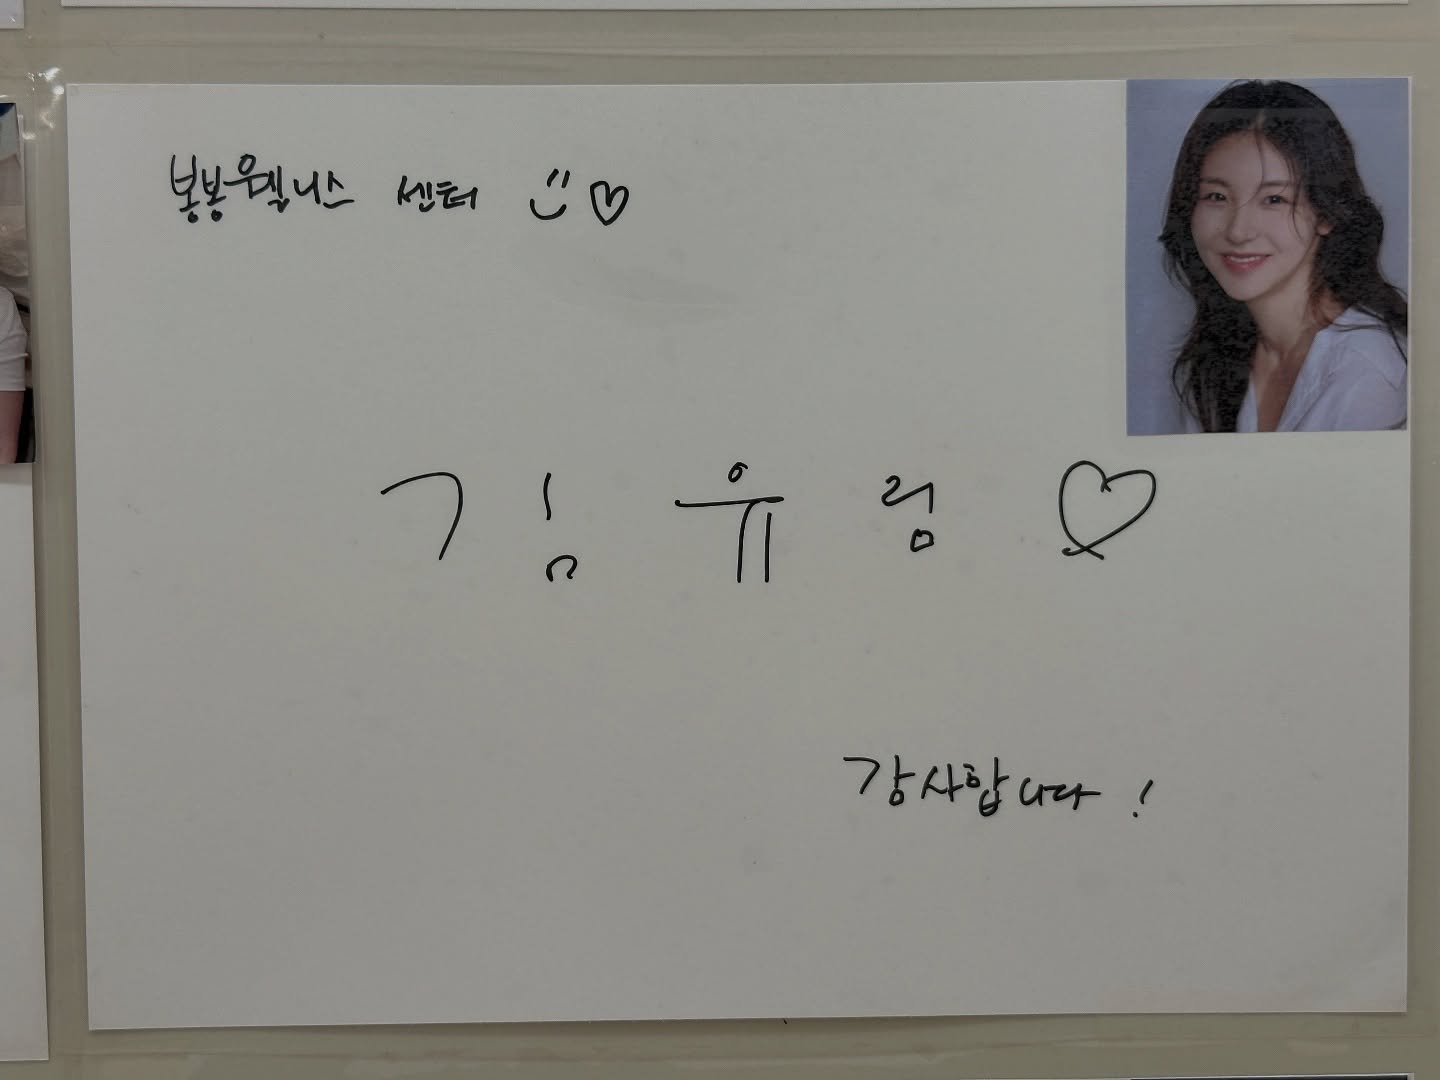 봉봉웰니스 센터
김유림
감사합니다!